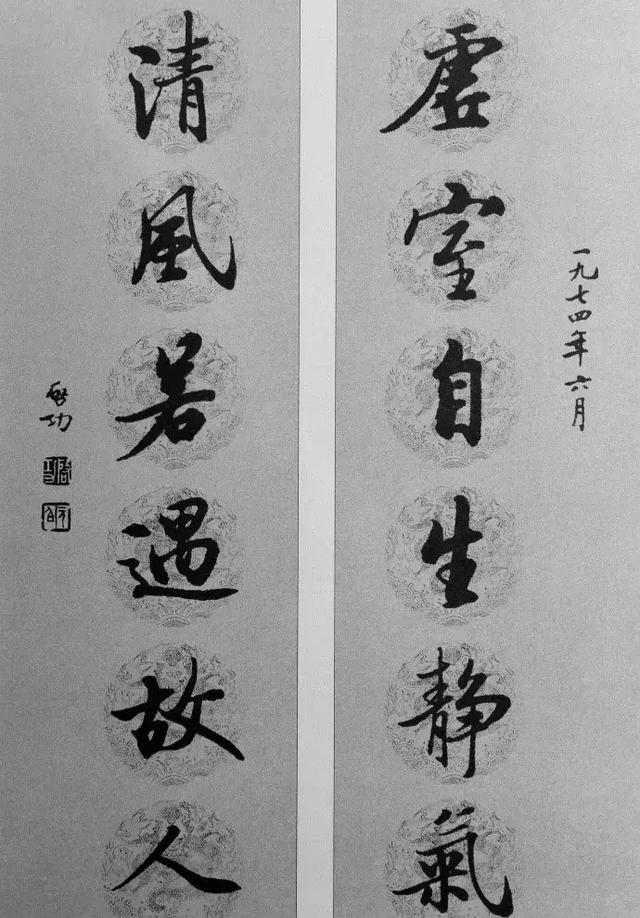 一九七四年六月
虚室自生静氣
清風若遇故人
啟功